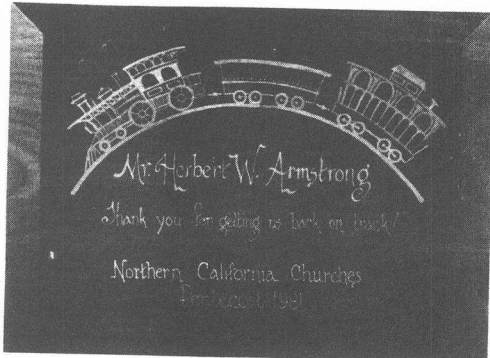 Mr. Herbert W. Armstrong
Thank you for getting us back on track!
Northern California Churches
Pentecost 1981